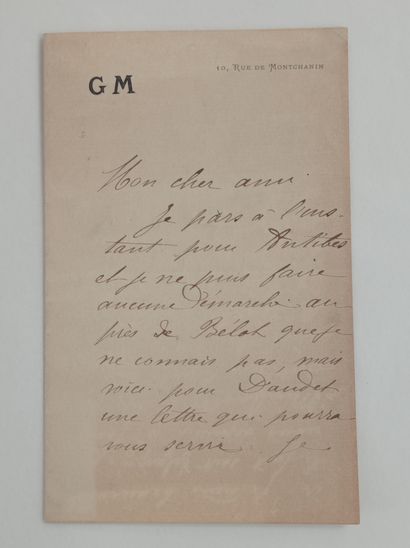 10, RUE DE MONTCHANIN
GM
Mon cher ami.
Je pars à l'ins-
tant pour Antibes
et je ne puis faire
aucune démarche au
près de Bélot que je
ne connais pas, mais
voici pour Daudet
une lettre qui pourra
vous servir. Je